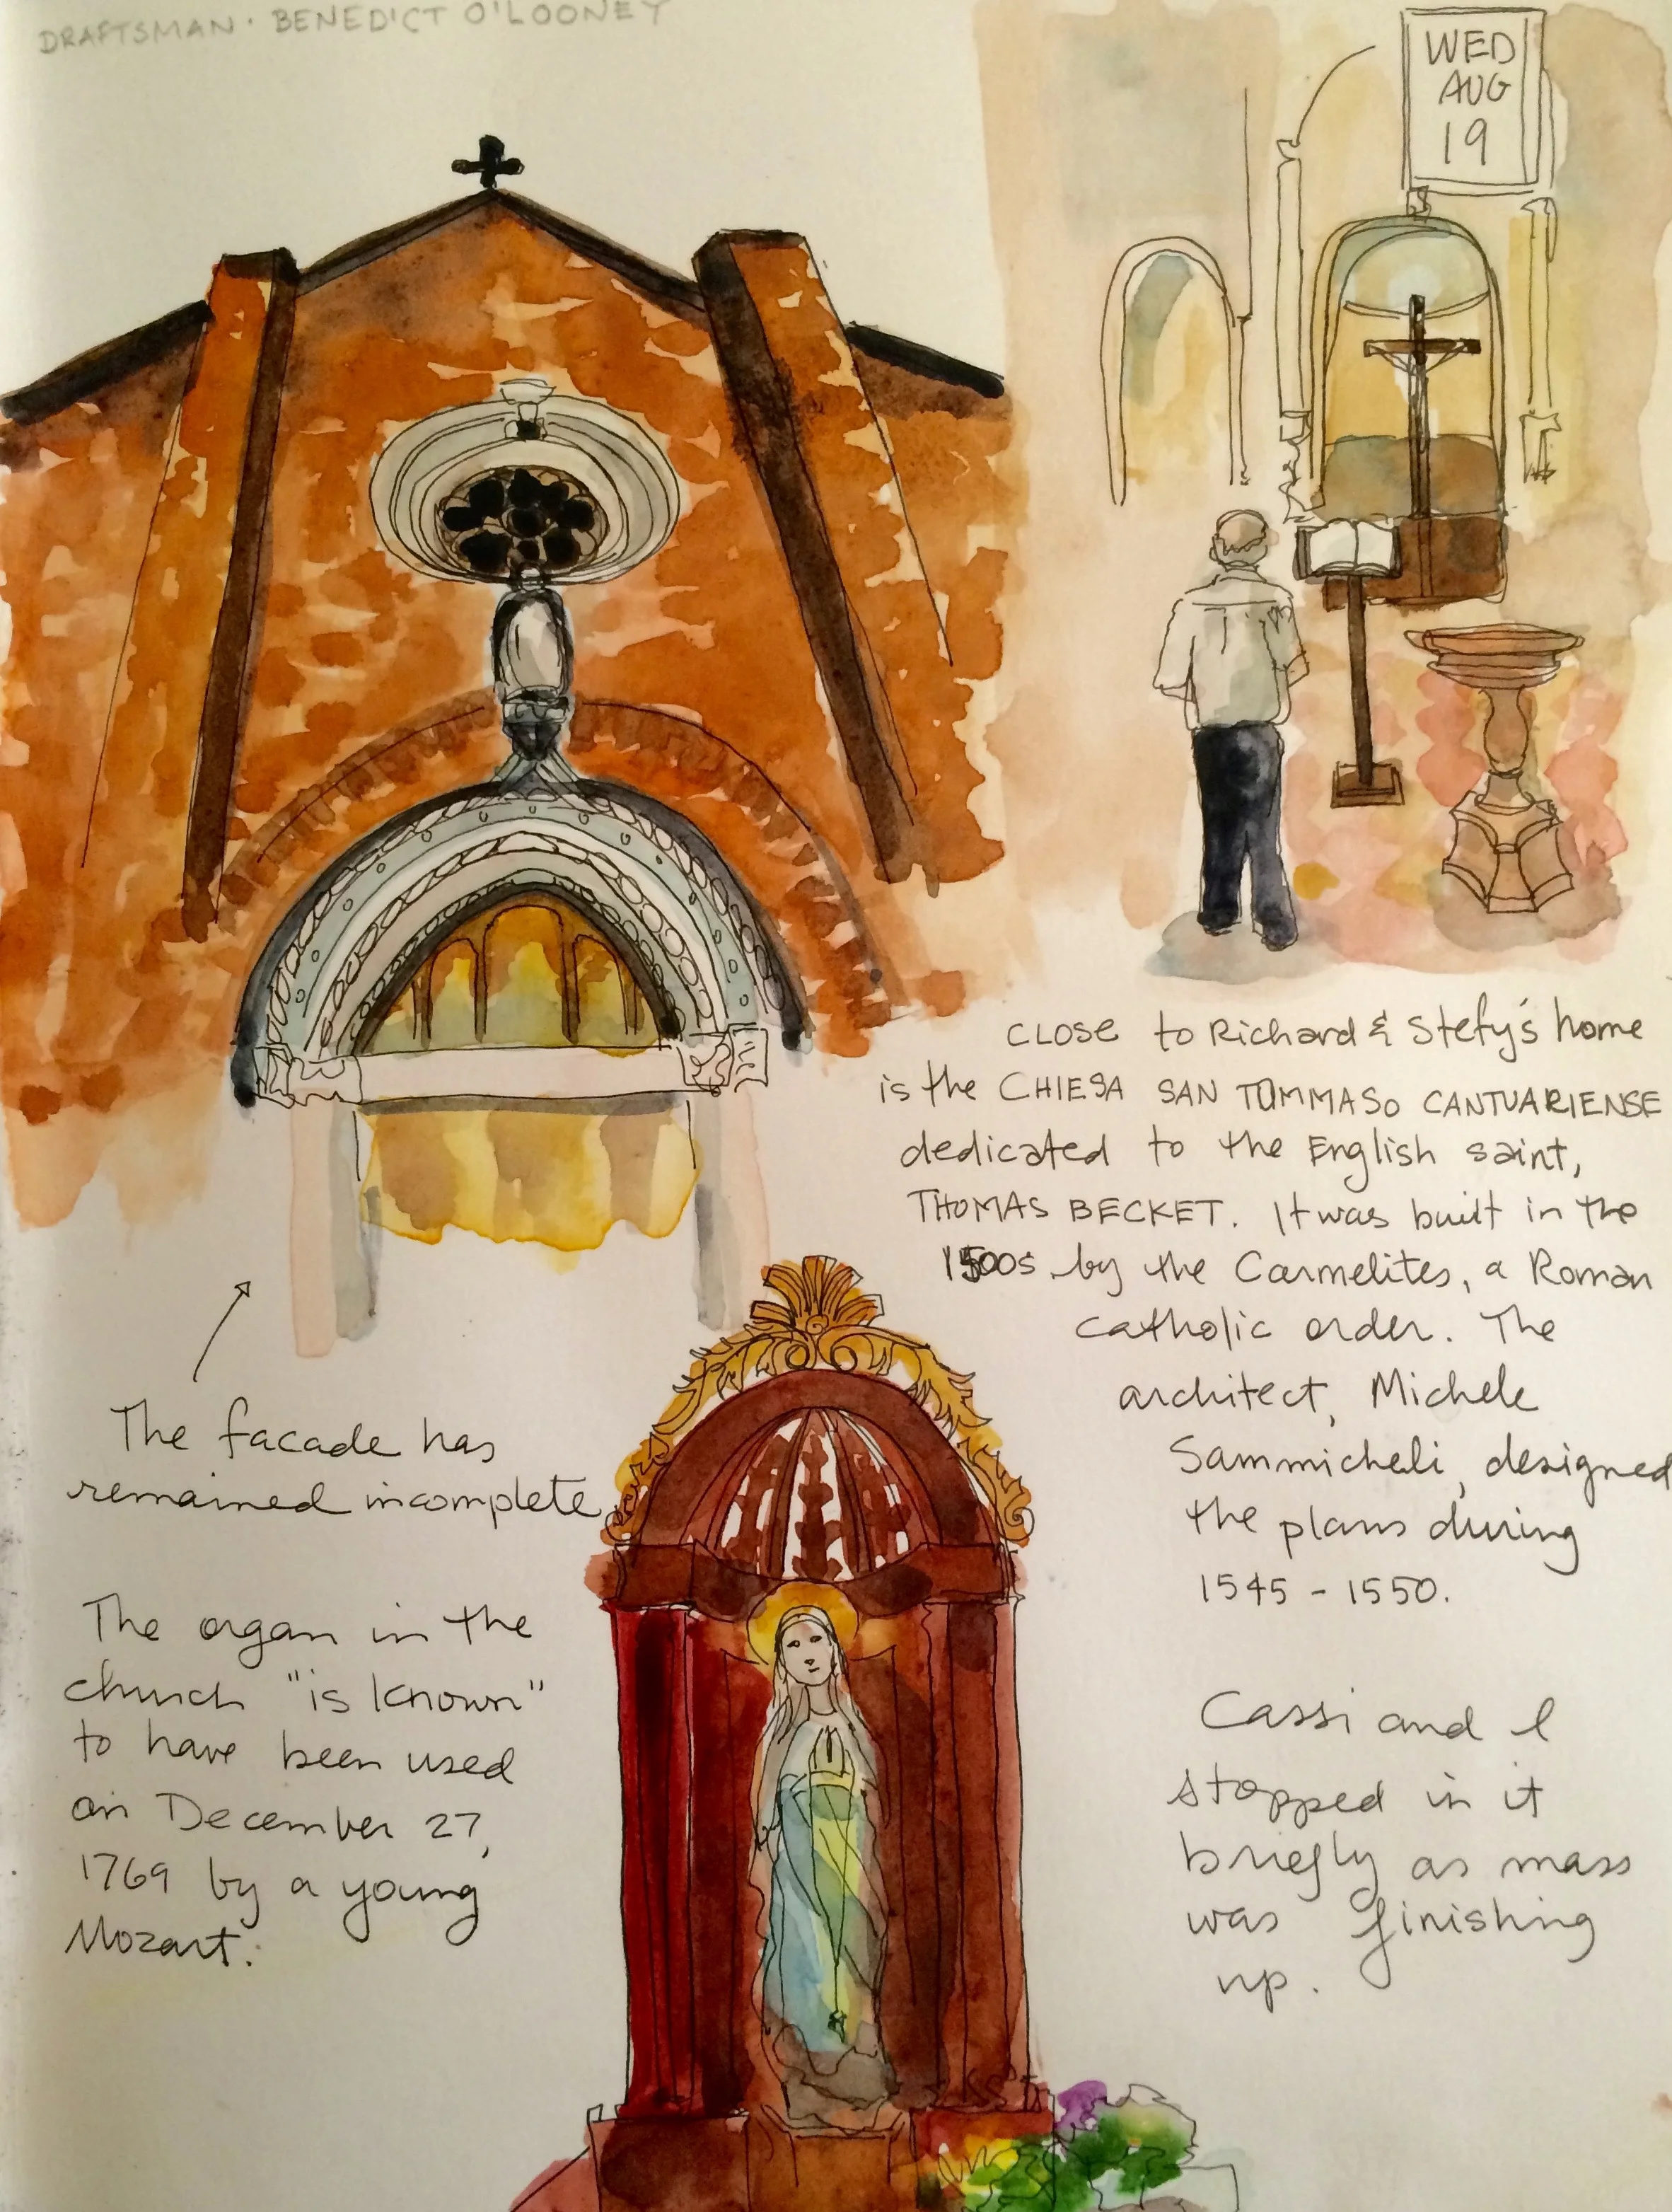 DRAFTSMAN · BENEDICT O'LOONEY
WED
AUG
19
CLOSE to Richard & Stefy's home
is the CHIESA SAN TOMMASO CANTUARIENSE
dedicated to the English saint,
THOMAS BECKET. It was built in the
1500s by the Carmelites, a Roman
catholic order. The
architect, Michele
Sammicheli, designed
the plans during
1545 - 1550.
Cassi and I
stopped in it
briefly as mass
was finishing
up.
The facade has
remained incomplete
The organ in the
church "is known"
to have been used
on December 27,
1769 by a young
Mozart.